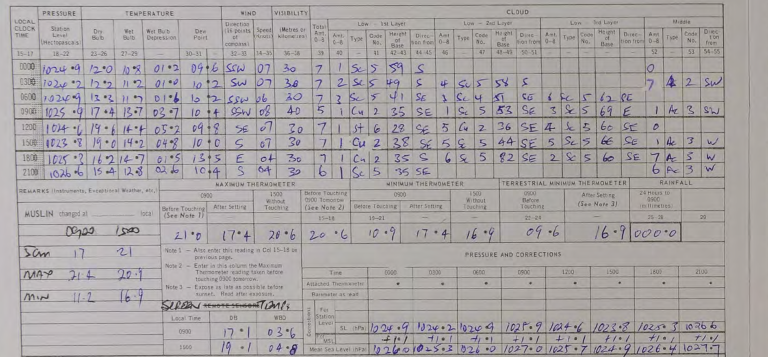 PRESSURE TEMPERATURE WIND VISIBILITY CLOUD
LOCAL CLOCK TIME Station Level (Hectopascals) Dry Bulb Wet Bulb Wet Bulb Depression Dew Point Direction (16 points of compass) Speed Metres or Total Amt 0-8 Low - 1st Layer Low - 2nd Layer Low - 3rd Layer Middle
Amt 0-8 Type Code No. Height of Base Direction from Amt 0-8 Type Code No. Height of Base Direction from Amt 0-8 Type Code No. Height of Base Direction from Amt 0-8 Type Code No. Direction from
0000 1024.9 12.0 10.8 01.2 09.6 SSW 07 30 7 1 Sc 5 59 S 0
0300 1024.2 12.2 11.2 01.0 10.2 SW 07 30 7 2 Sc 5 49 S 4 Sc 5 58 S 7 2 SW
0600 1024.9 13.3 11.7 01.6 10.2 SSW 06 30 7 3 Sc 5 41 SE 3 Sc 4 51 SE 6 Sc 5 62 SE
0900 1025.9 17.4 13.7 03.7 10.4 SSW 08 40 5 1 Cu 2 35 SE 1 Sc 5 53 SE 3 Sc 5 69 E 1 Ac 3 SW
1200 1024.6 19.6 14.4 05.2 09.8 SE 07 30 7 1 St 6 28 SE 5 Cu 2 36 SE 4 Sc 5 60 SE 0
1500 1023.8 19.0 14.2 04.8 10.0 S 07 30 7 1 Cu 2 38 SE 5 Sc 5 44 SE 5 Sc 5 66 SE 1 Ac 3 W
1800 1025.3 16.2 14.7 01.5 13.5 E 04 30 7 1 Cn 2 35 S 6 Sc 5 82 SE 2 Sc 5 60 SE 7 Ac 5 W
2100 1026.6 15.4 12.8 02.6 10.4 S 04 30 6 1 Sc 5 35 SE 6 Ac 3 W
REMARKS (Instruments, Exceptional Weather, etc.) MAXIMUM THERMOMETER MINIMUM THERMOMETER TERRESTRIAL MINIMUM THERMOMETER RAINFALL
0900 1500 Without Touching Before Touching 0900 Tomorrow (See Note 2) 0900 1500 Without Touching 0900 Before Touching After Setting (See Note 3) 24 Hours to 0900
MUSLIN changed at Before Touching (See Note 1) After Setting Before Touching After Setting
0900 1500 21.0 17.4 20.6 20.6 10.9 17.4 16.9 09.6 16.9 000.0
17 21
MAX 21.4 20.9
MIN 11.2 16.9
Note 1 - Also enter this reading in Col 15-18 on previous page.
Note 2 - Enter in this column the Maximum Thermometer reading taken before touching 0900 tomorrow.
Note 3 - Expose as late as possible before sunset. Read after exposure.
PRESSURE AND CORRECTIONS
Time 0000 0300 0600 0900 1200 1500 1800 2100
Attached Thermometer
Barometer as read
SCREEN TEMPS
Local Time DB WBD
0900 17.1 03.6
1500 19.1 04.8
For Station Level SL (hPa) 1024.9 1024.2 1024.9 1025.9 1024.6 1023.8 1025.3 1026.6
MSL +1.1 +1.1 +1.1 +1.1 +1.1 +1.1 +1.1 +1.1
Mean Sea Level (hPa) 1026.0 1025.3 1026.0 1027.0 1025.7 1024.9 1026.4 1027.7